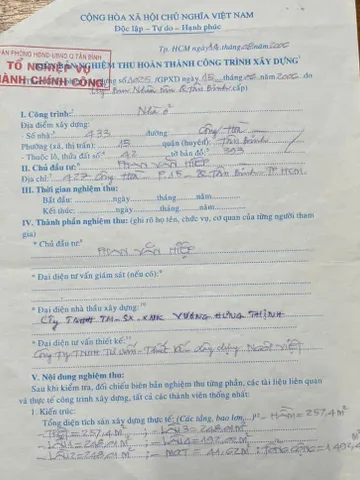 CỘNG HÒA XÃ HỘI CHỦ NGHĨA VIỆT NAM
Độc lập – Tự do – Hạnh phúc
Tp. HCM ngày tháng năm
VĂN PHÒNG HĐND-UBND Q.TÂN BÌNH
TỔ NGHIỆP VỤ
HÀNH CHÍNH CÔNG
BẢN NGHIỆM THU HOÀN THÀNH CÔNG TRÌNH XÂY DỰNG
dựng số /GPXD ngày 15 tháng năm do
Ủy Ban Nhân Dân Q Tân Bình cấp)
I. Công trình: Nhà ở
Địa điểm xây dựng:
- Số nhà: 433 đường: Cộng Hòa
Phường (xã, thị trấn): 15 quận (huyện): Tân Bình
- Thuộc lô, thửa đất số: 42 tờ bản đồ: 303
II. Chủ đầu tư: PHAN VĂN HIỆP
Địa chỉ: 427 Cộng Hòa P.15 - Q Tân Bình TP HCM
III. Thời gian nghiệm thu:
Bắt đầu: ngày tháng năm
Kết thúc: ngày tháng năm
IV. Thành phần nghiệm thu: (ghi rõ họ tên, chức vụ, cơ quan của từng người tham
gia)
* Chủ đầu tư:
PHAN VĂN HIỆP
* Đại diện tư vấn giám sát (nếu có):
* Đại diện nhà thầu xây dựng:
CTy TNHH TM-SX-XNK VƯƠNG HƯNG THỊNH
* Đại diện tư vấn thiết kế:
Công Ty TNHH Tư Vấn - Thiết Kế - Xây dựng NGÔI VIỆT
V. Nội dung nghiệm thu:
Sau khi kiểm tra, đối chiếu biên bản nghiệm thu từng phần, các tài liệu liên quan
và thực tế công trình xây dựng, tất cả các thành viên thống nhất:
1. Kiến trúc:
Tổng diện tích sàn xây dựng thực tế: (Các tầng, bao lơn,...) - HẦM = 257,4 m²
- TRỆT = 257,4 m² ; - LẦU 3 = 248,04 m²
- LẦU 1 = 248,04 m² ; - LẦU 4 = 192,02 m²
- LẦU 2 = 248,04 m² ; - MÁI = 41,62 m² ; TỔNG CỘNG = 1.492,4